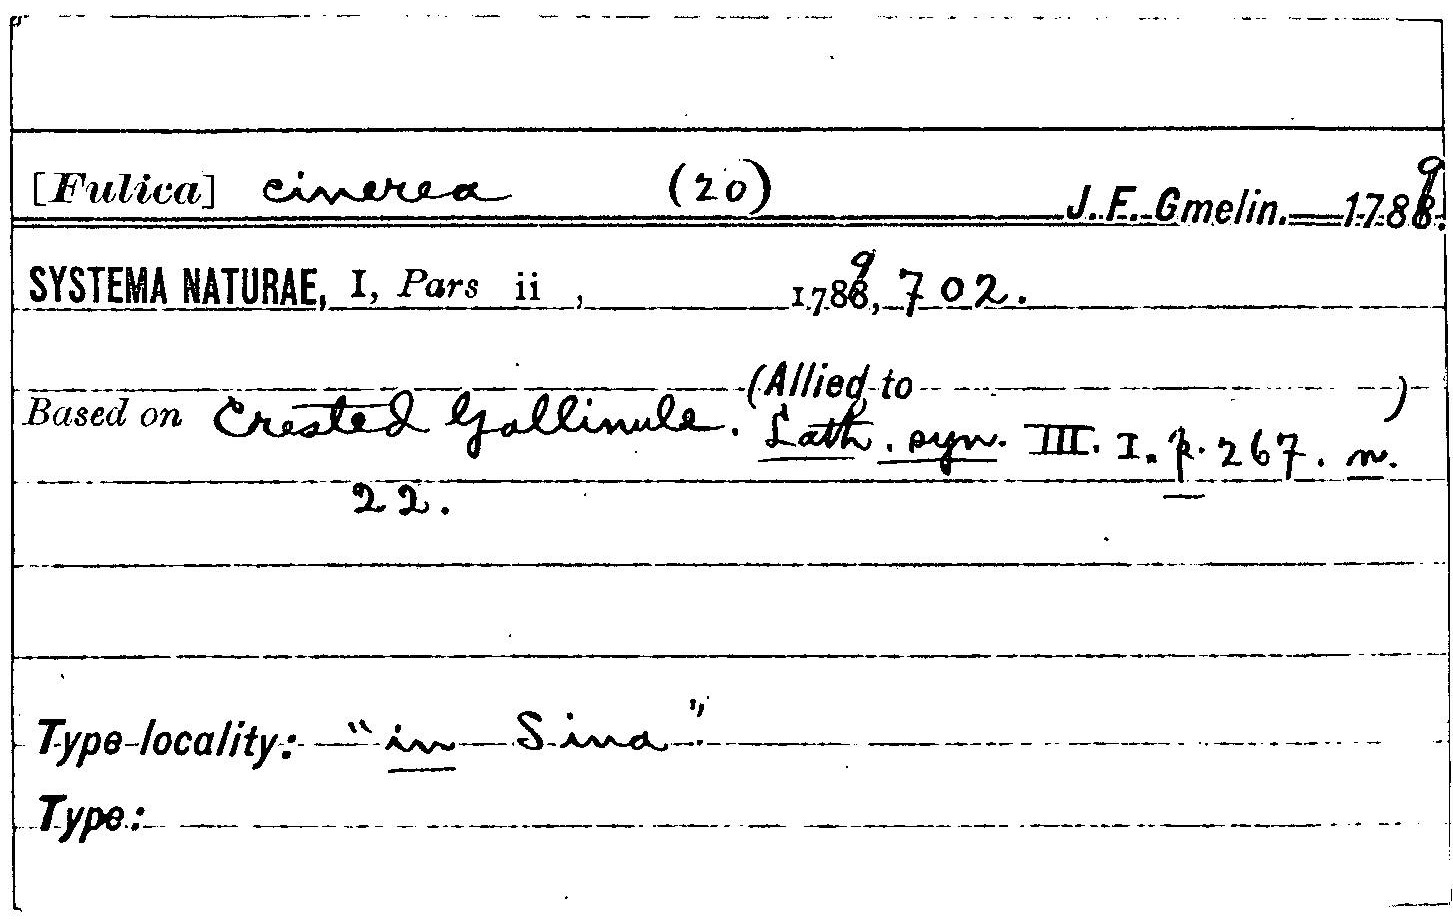 [Fulica] cinerea (20) J. F. Gmelin. 1789.
SYSTEMA NATURAE, I, Pars ii , 1789, 702.
(Allied to )
Based on Crested Gallinule. Lath. syn. III. I. p. 267. n.
22.
Type locality: "in Sina".
Type: